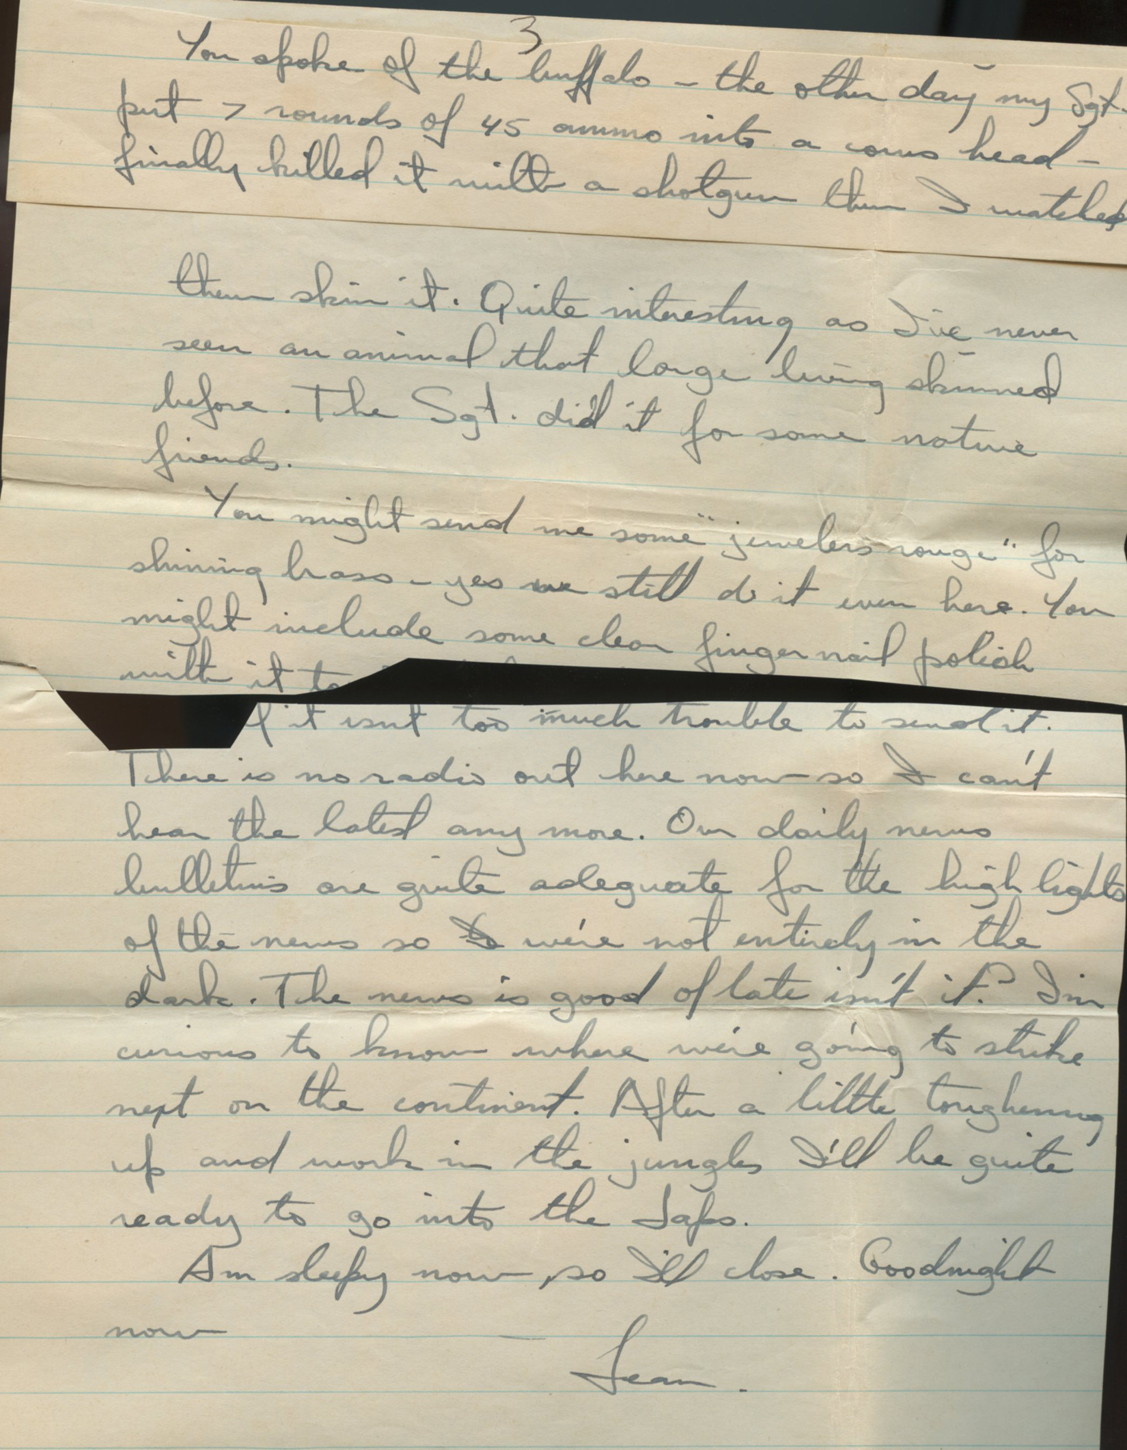 3
You spoke of the buffalo – the other day my Sgt.
put 7 rounds of 45 ammo into a cows head –
finally killed it with a shotgun then I watched
them skin it. Quite interesting as I've never
seen an animal that large being skinned
before. The Sgt. did it for some native
friends.
You might send me some "jewelers rouge" for
shining brass – yes we still do it even here. You
might include some clear fingernail polish
with it to
if it isnt too much trouble to send it.
There is no radio out here now so I can't
hear the latest any more. Our daily news
bulletins are quite adequate for the high lights
of the news so we're not entirely in the
dark. The news is good of late isn't it? I'm
curious to know where we're going to strike
next on the continent. After a little toughening
up and work in the jungles I'll be quite
ready to go into the Japs.
Am sleepy now, so I'll close. Goodnight
now —